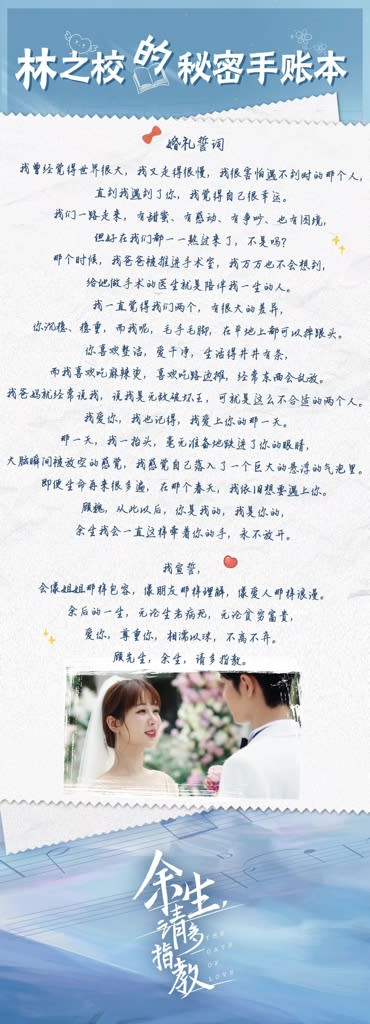 林之校的秘密手账本
婚礼誓词
我曾经觉得世界很大，我又走得很慢，我很害怕遇不到对的那个人，
直到我遇到了你，我觉得自己很幸运。
我们一路走来，有甜蜜、有感动、有争吵、也有困境，
但好在我们都一一熬过来了，不是吗？
那个时候，我爸爸被推进手术室，我万万也不会想到，
给他做手术的医生就是陪伴我一生的人。
我一直觉得我们两个，有很大的差异，
你沉稳、稳重，而我呢，毛手毛脚，在平地上都可以摔跟头。
你喜欢整洁，爱干净，生活得井井有条，
而我喜欢吃麻辣烫，喜欢吃路边摊，经常东西会乱放。
我爸妈就经常说我，说我是无敌破坏王，可就是这么不合适的两个人。
我爱你，我也记得，我爱上你的那一天。
那一天，我一抬头，毫无准备地跌进了你的眼睛，
大脑瞬间被放空的感觉，我感觉自己落入了一个巨大的悬浮的气泡里。
即便生命再来很多遍，在那个春天，我依旧想要遇上你。
顾魏，从此以后，你是我的，我是你的，
余生我会一直这样牵着你的手，永不放开。
我宣誓，
会像姐姐那样包容，像朋友那样理解，像爱人那样浪漫。
余后的一生，无论生老病死，无论贫穷富贵，
爱你，尊重你，相濡以沫，不离不弃。
顾先生，余生，请多指教。
余生，
请多
指教
THE
OATH
OF
LOVE